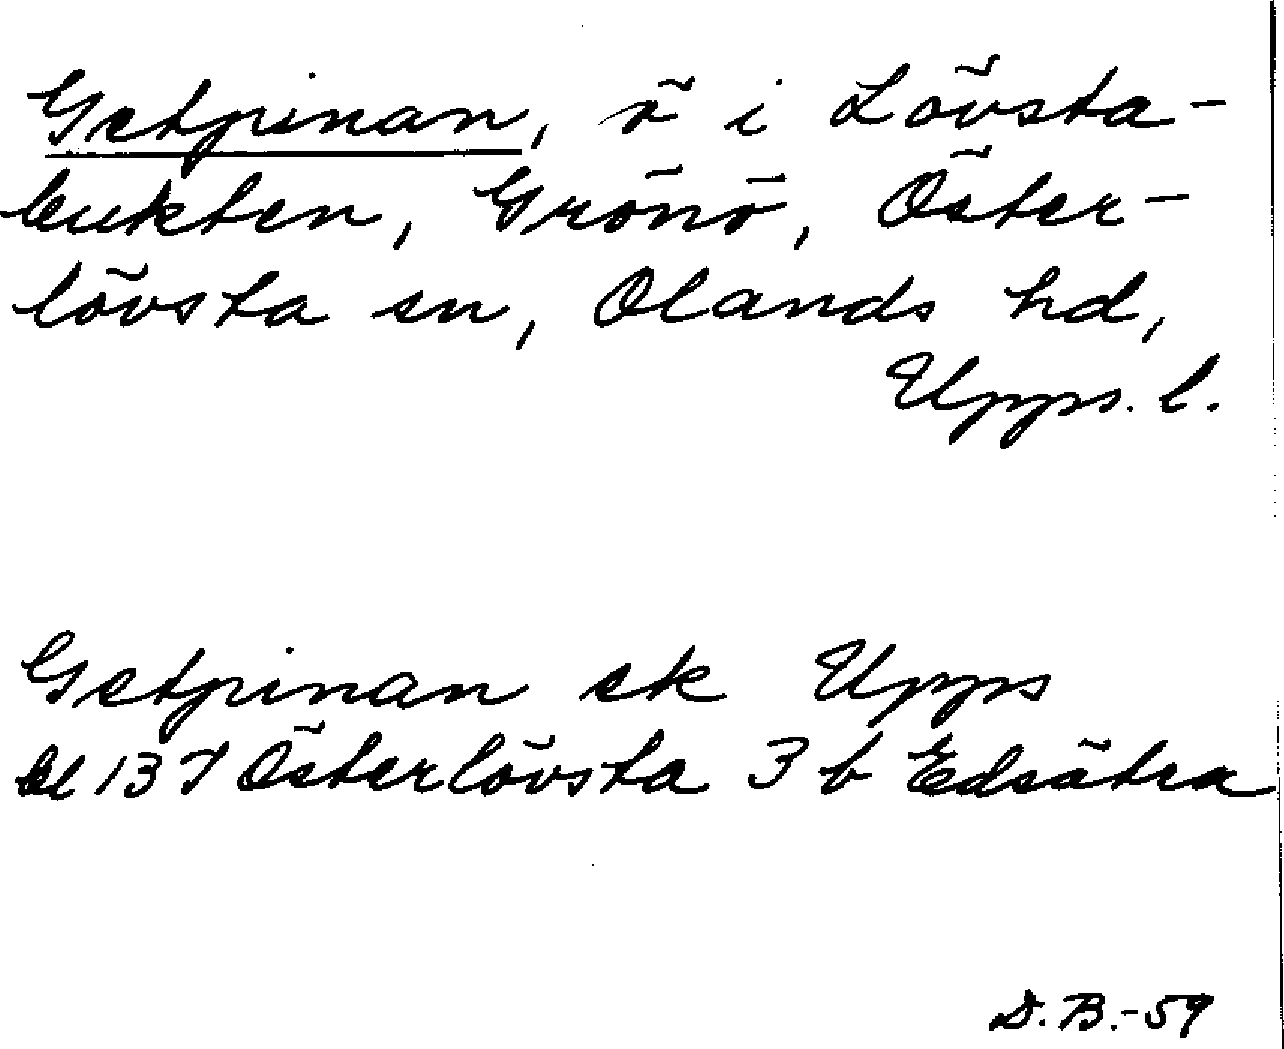 Getpinan, ö i Lövsta-
bukten, Grönö, Öster-
lövsta sn, Olands hd,
Upps. l.
Getpinan ek Upps
bl 137 Österlövsta 3 b Edsätra
D.B.-59